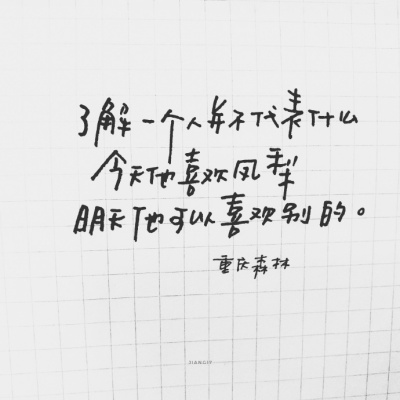 了解一个人并不代表什么
今天他喜欢凤梨
明天他可以喜欢别的。
重庆森林
JIANGJF